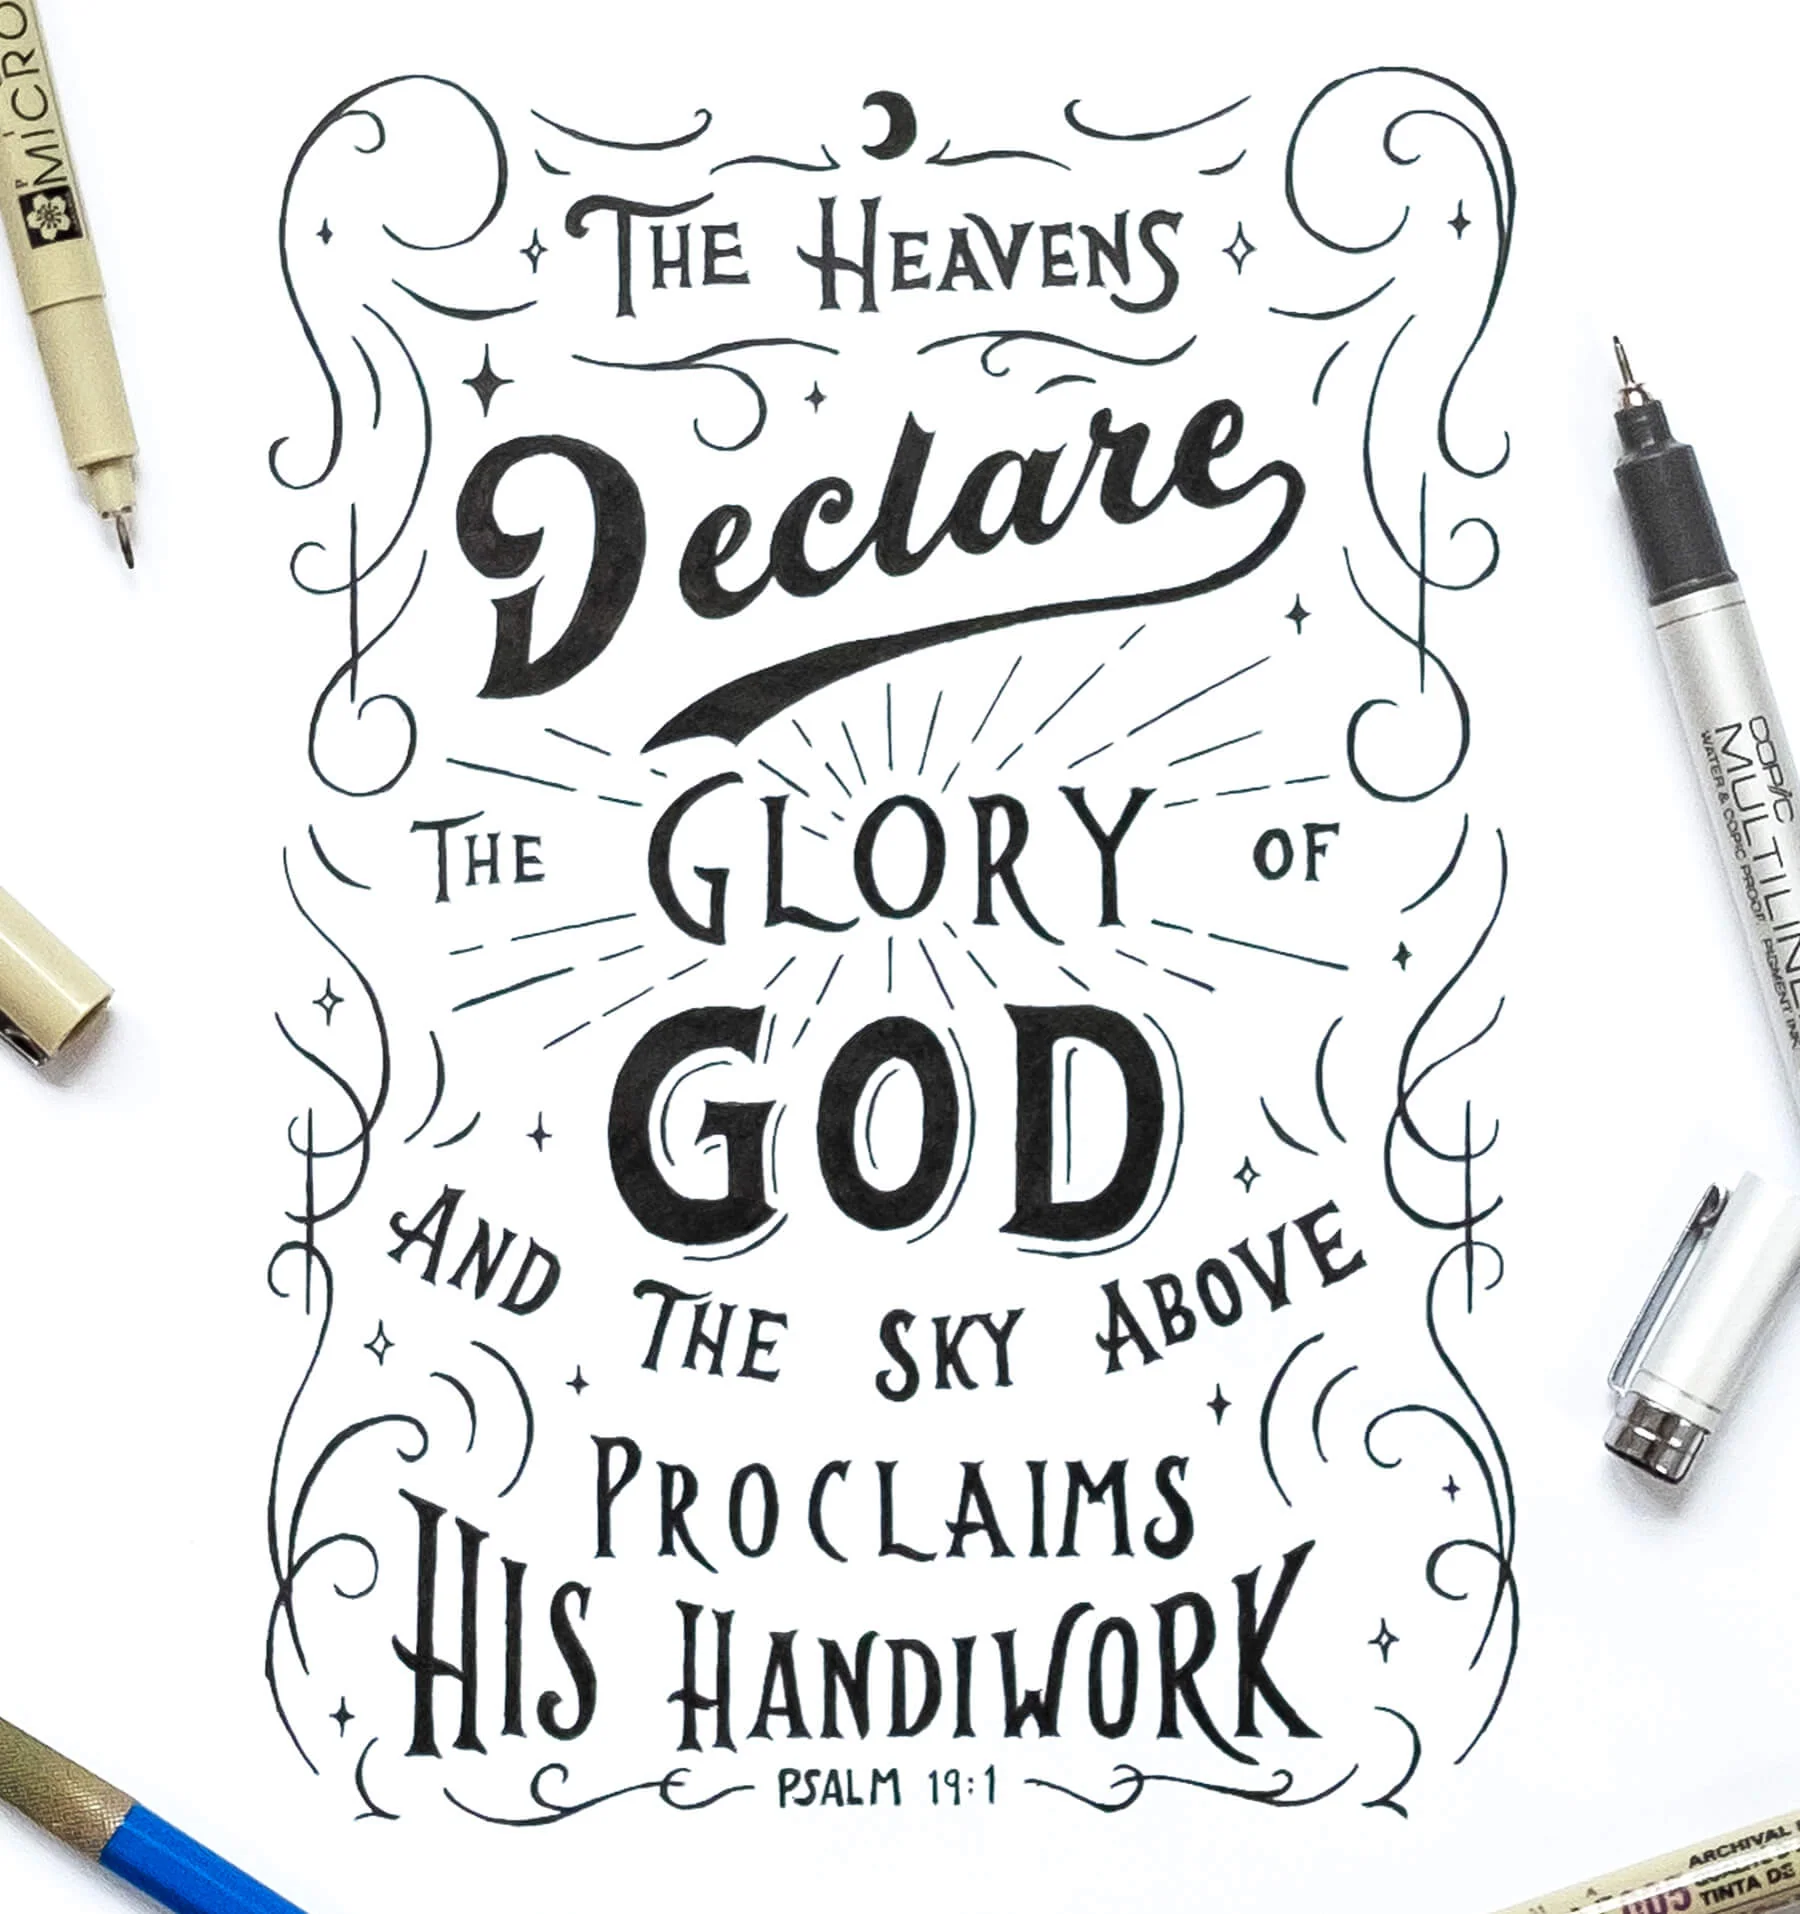 MICRO
THE HEAVENS
Declare
THE GLORY OF
GOD
AND THE SKY ABOVE
PROCLAIMS
HIS HANDIWORK
PSALM 19:1
COPIC
MULTILIN
WATER & COPIC PROOF PIGMENT INK
ARCHIVAL
005 TINTA DE